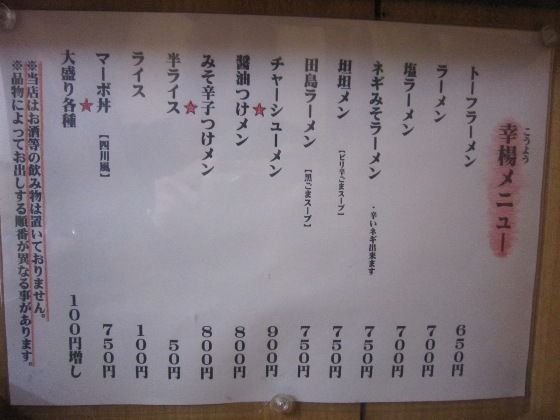 こうよう
幸楊メニュー
トーフラーメン 650円
ラーメン 700円
塩ラーメン 700円
ネギみそラーメン ・辛いネギ出来ます 750円
坦坦メン 【ピリ辛ごまスープ】 750円
田島ラーメン 【黒ごまスープ】 750円
チャーシューメン 900円
醤油つけメン 800円
みそ辛子つけメン 800円
半ライス 50円
ライス 100円
マーボ丼 【四川風】 750円
大盛り各種 100円増し
※当店はお酒等の飲み物は置いておりません。
※品物によってお出しする順番が異なる事があります。